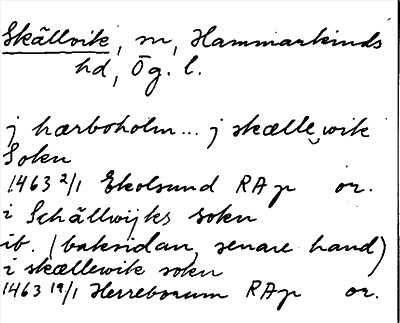 Skällvik, sn, Hammarkinds
hd, Ög. l.
j hærboholm... j skælle‿wik
Sokn
1463 2/1 Ekolsund RAp or.
i Schällwijks sokn
ib. (baksidan, senare hand)
i skællewik sokn
1463 19/1 Herreborum RAp or.